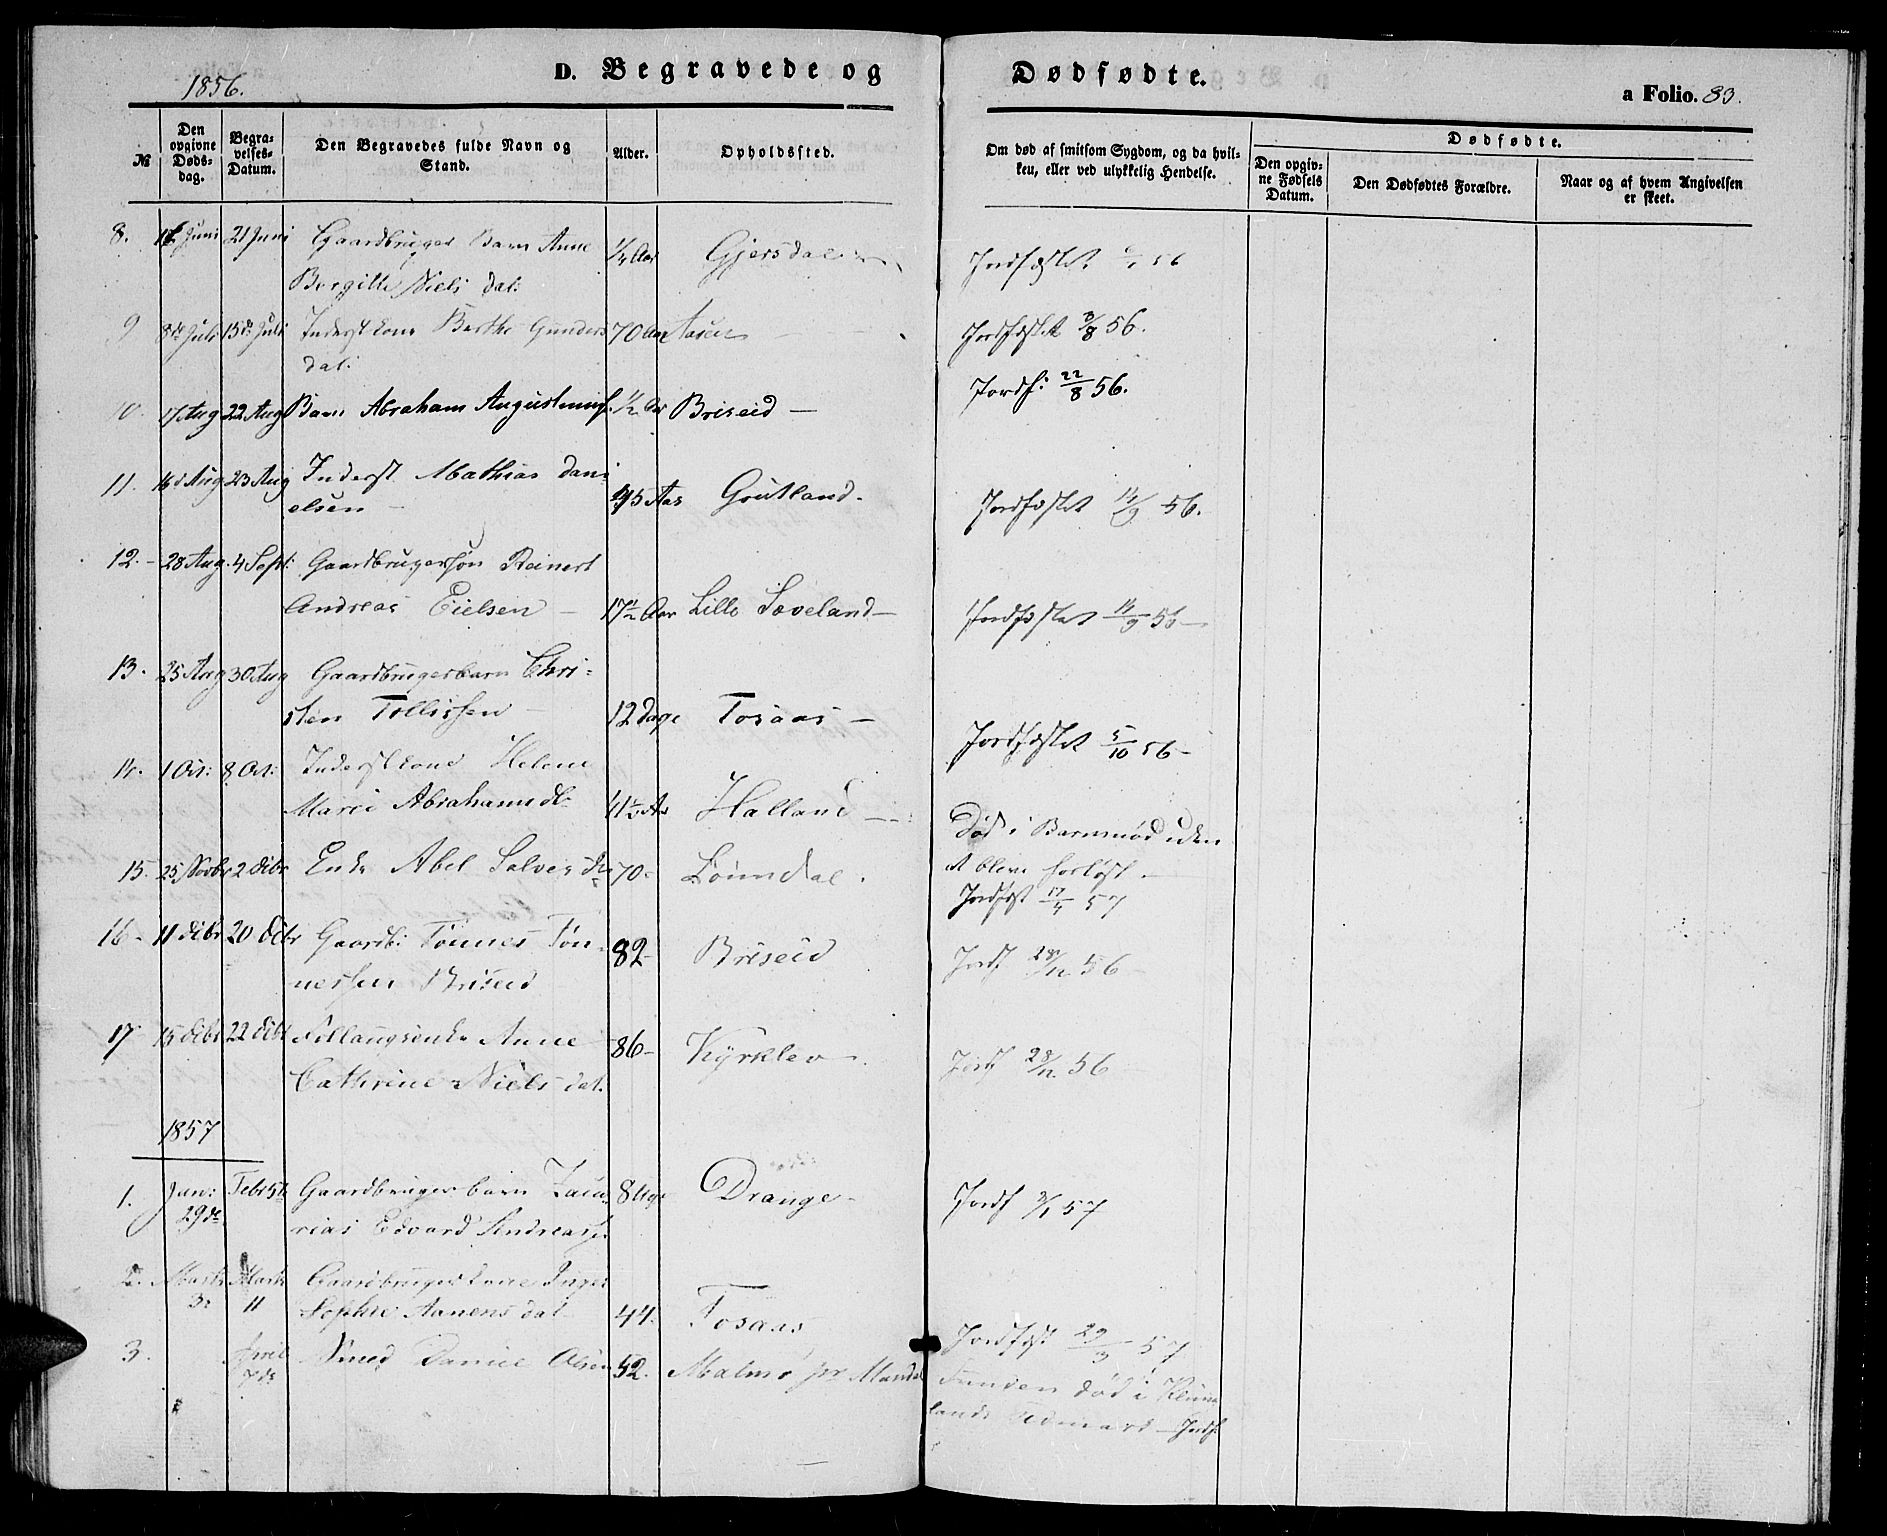 1856.
D. Begravede og Dødfødte.
a Folio. 83.
No
Den opgivne Døds-dag.
Begra-velses-Datum.
Den Begravedes fulde Navn og Stand.
Alder.
Opholdssted.
Om død af smitsom Sygdom, og da hvil-ken, eller ved ulykkelig Hendelse.
Dødfødte.
Den opgiv-ne Fødsels Datum.
Den Dødfødtes Forældre.
Naar og af hvem Angivelsen er skeet.
8. Juni 21 Juni Gaardbruger Barn Anne 1/4 Aar Gjersdal
Bergitte Niels dat:
Jordfæstet 56
9 8de Juli 15de Juli Inderst kone Berthe Gunders 70 Aar Aasen
dat:
Jordfæstet 3/8 56.
10. 17 Aug 22 Aug Barn Abraham Augustinus. 1/2 Aar Briseid —
Jordf: 22/8 56.
11. 16d Aug 23 Aug Inderst Mathias Dani
elsen — 45 Aar Grutland.
Jordfæstet 14/9 56.
12. - 28 Aug. 4 Sept: Gaardbrugersøn Reinert
Andreas Eielsen — 17 1/2 Aar Lille Sæveland —
Jordfæstet 14/9 56 —
13. 25 Aug 30 Aug Gaardbrugerbarn Chri-
sten Tollissen — 12 Dage Tosaas —
Jordfæstet 5/10 56 —
14. 1 Oct: 8 Oct: Inderst kone Helene
Marie Abrahamsd. 41 1/2 Aar Halland —
Død i Barnnød uden
at blive forløst.
15. 25 Novbr 2 Decbr Enke Abel Salvesd. 70. Løundal.
Jordfæst 17/4 57
16 - 11 Decbr 20 Decbr Gaardb: Tønnes Tøn-
nessen Briseid 82 - Briseid
Jordf 28/12 56 —
17. 15 Decbr 22 Decbr Anne
Cathrine Niels dat. 86 - Kyrklev.
Jordf 28/12 56
1857
1. Jan: 29de Febr 5t Gaardbruger barn Zaca
rias Edvard Andreass. 8 Uger Drange -
Jordf 57
2. Marts 3. Marts 11 Gaardbruger kone Inger
Sophie Aanens dat 44. Tosaas
Jordfæst 29/3 57
3. April 7de Smed Daniel Olsen 52. Malmø pr Mandal
Funden død i
Jordf.